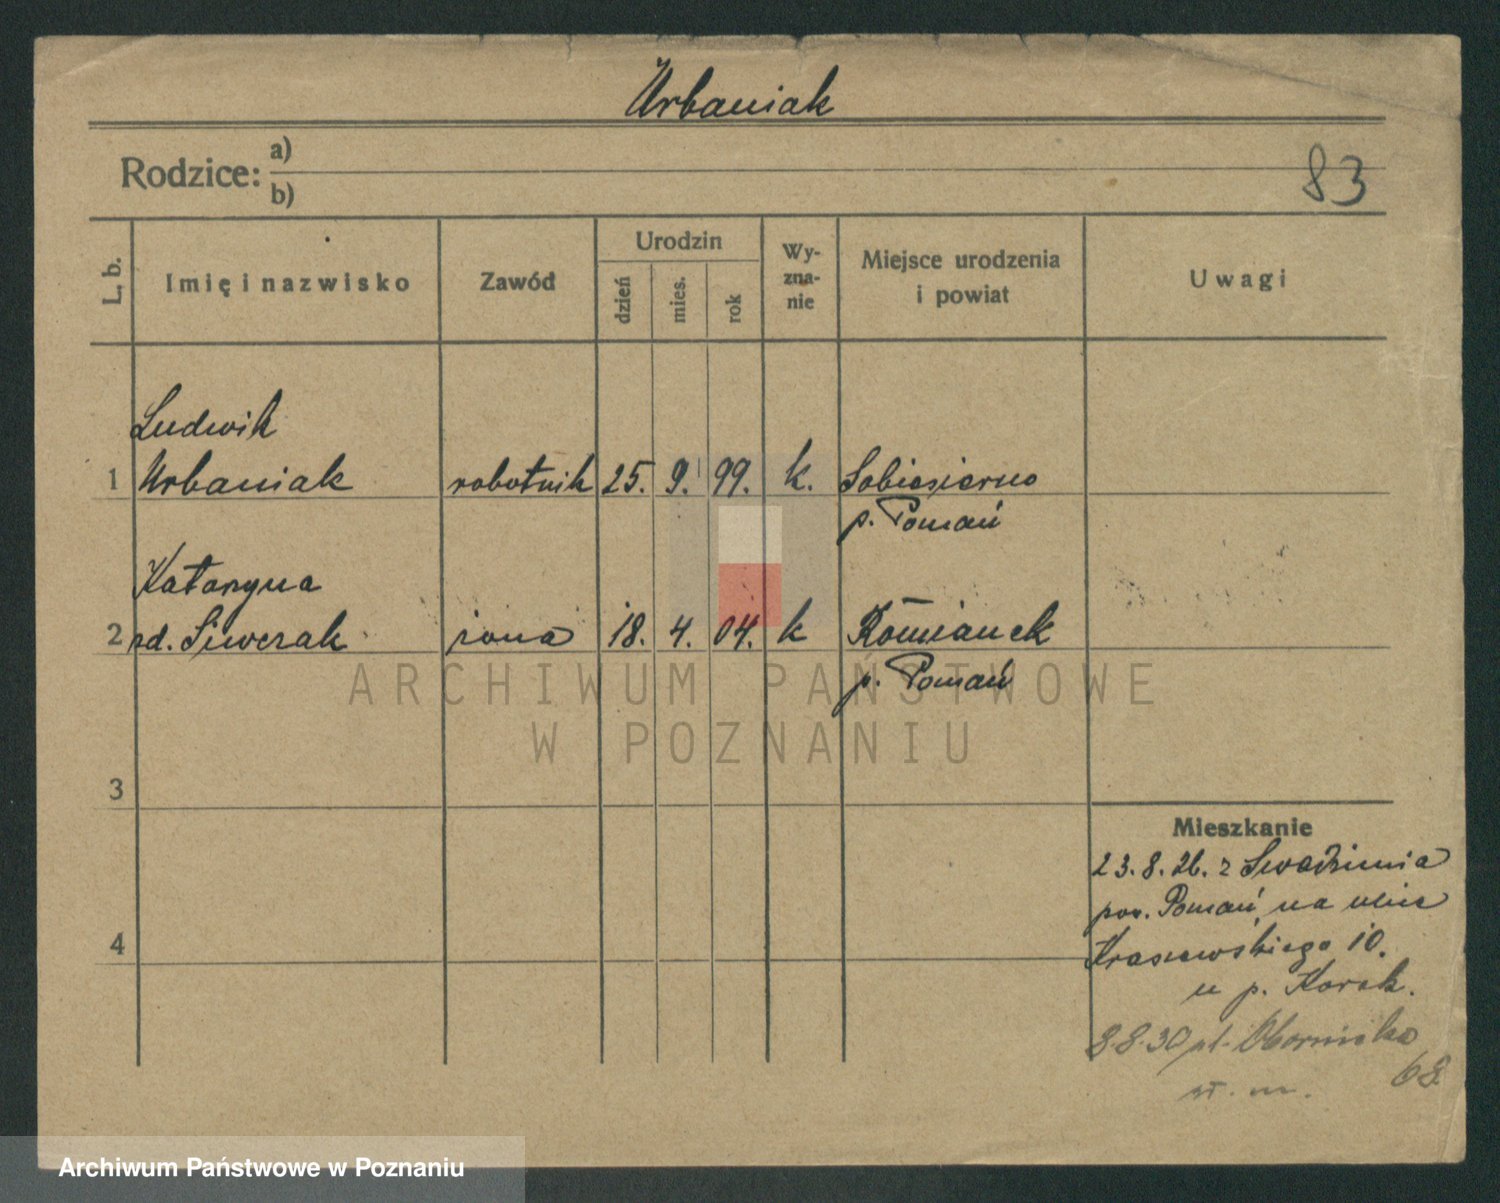 Urbaniak
Rodzice: a)
b)
83
L. b.
Imię i nazwisko
Zawód
Urodzin
dzień
mies.
rok
Wy-
zna-
nie
Miejsce urodzenia
i powiat
Uwagi
Ludwik
1 Urbaniak robotnik 25. 9. 99. k. Sobiesierno
p. Poznań
Katarzyna
2 rd. Siwczak żona 18. 4. 04. k
p. Poznań
ARCHIWUM PAŃSTWOWE
W POZNANIU
3
Mieszkanie
23.8.26. z Swadzimia
pow. Poznań na ulice
4
Kraszewskiego 10.
u p. Korek.
8.8.30 Obornicka
68
Archiwum Państwowe w Poznaniu